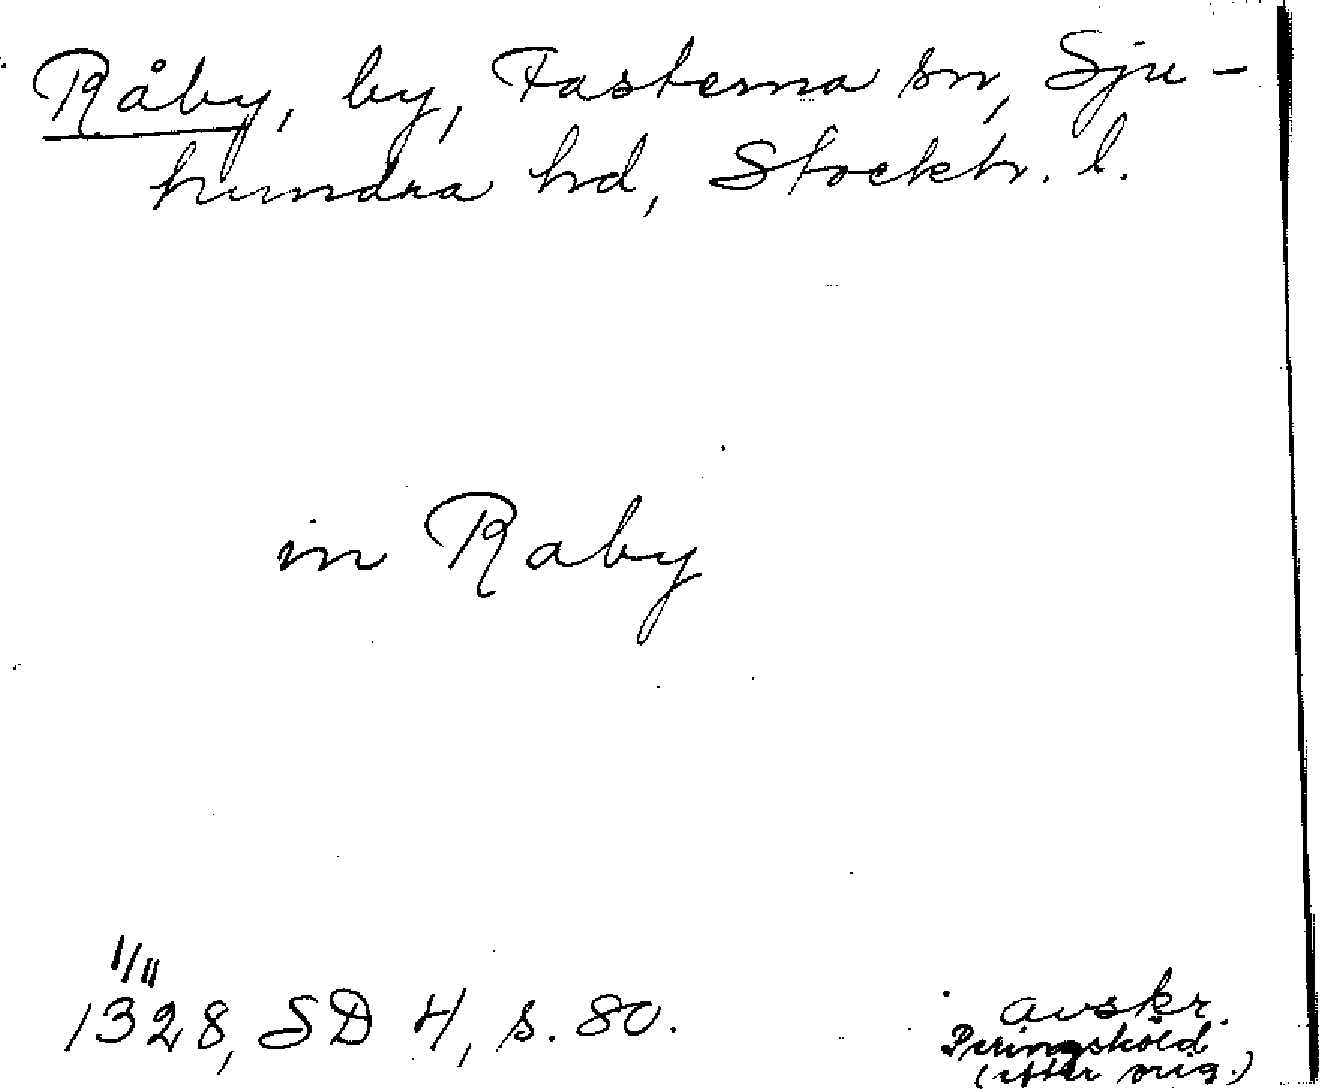 Råby, by, Fasterna sn, Sju-
hundra hd, Stockh. l.
in Raby
1/11
1328, SD 4, s. 80.
avskr.
Peringskiöld
(efter orig.)